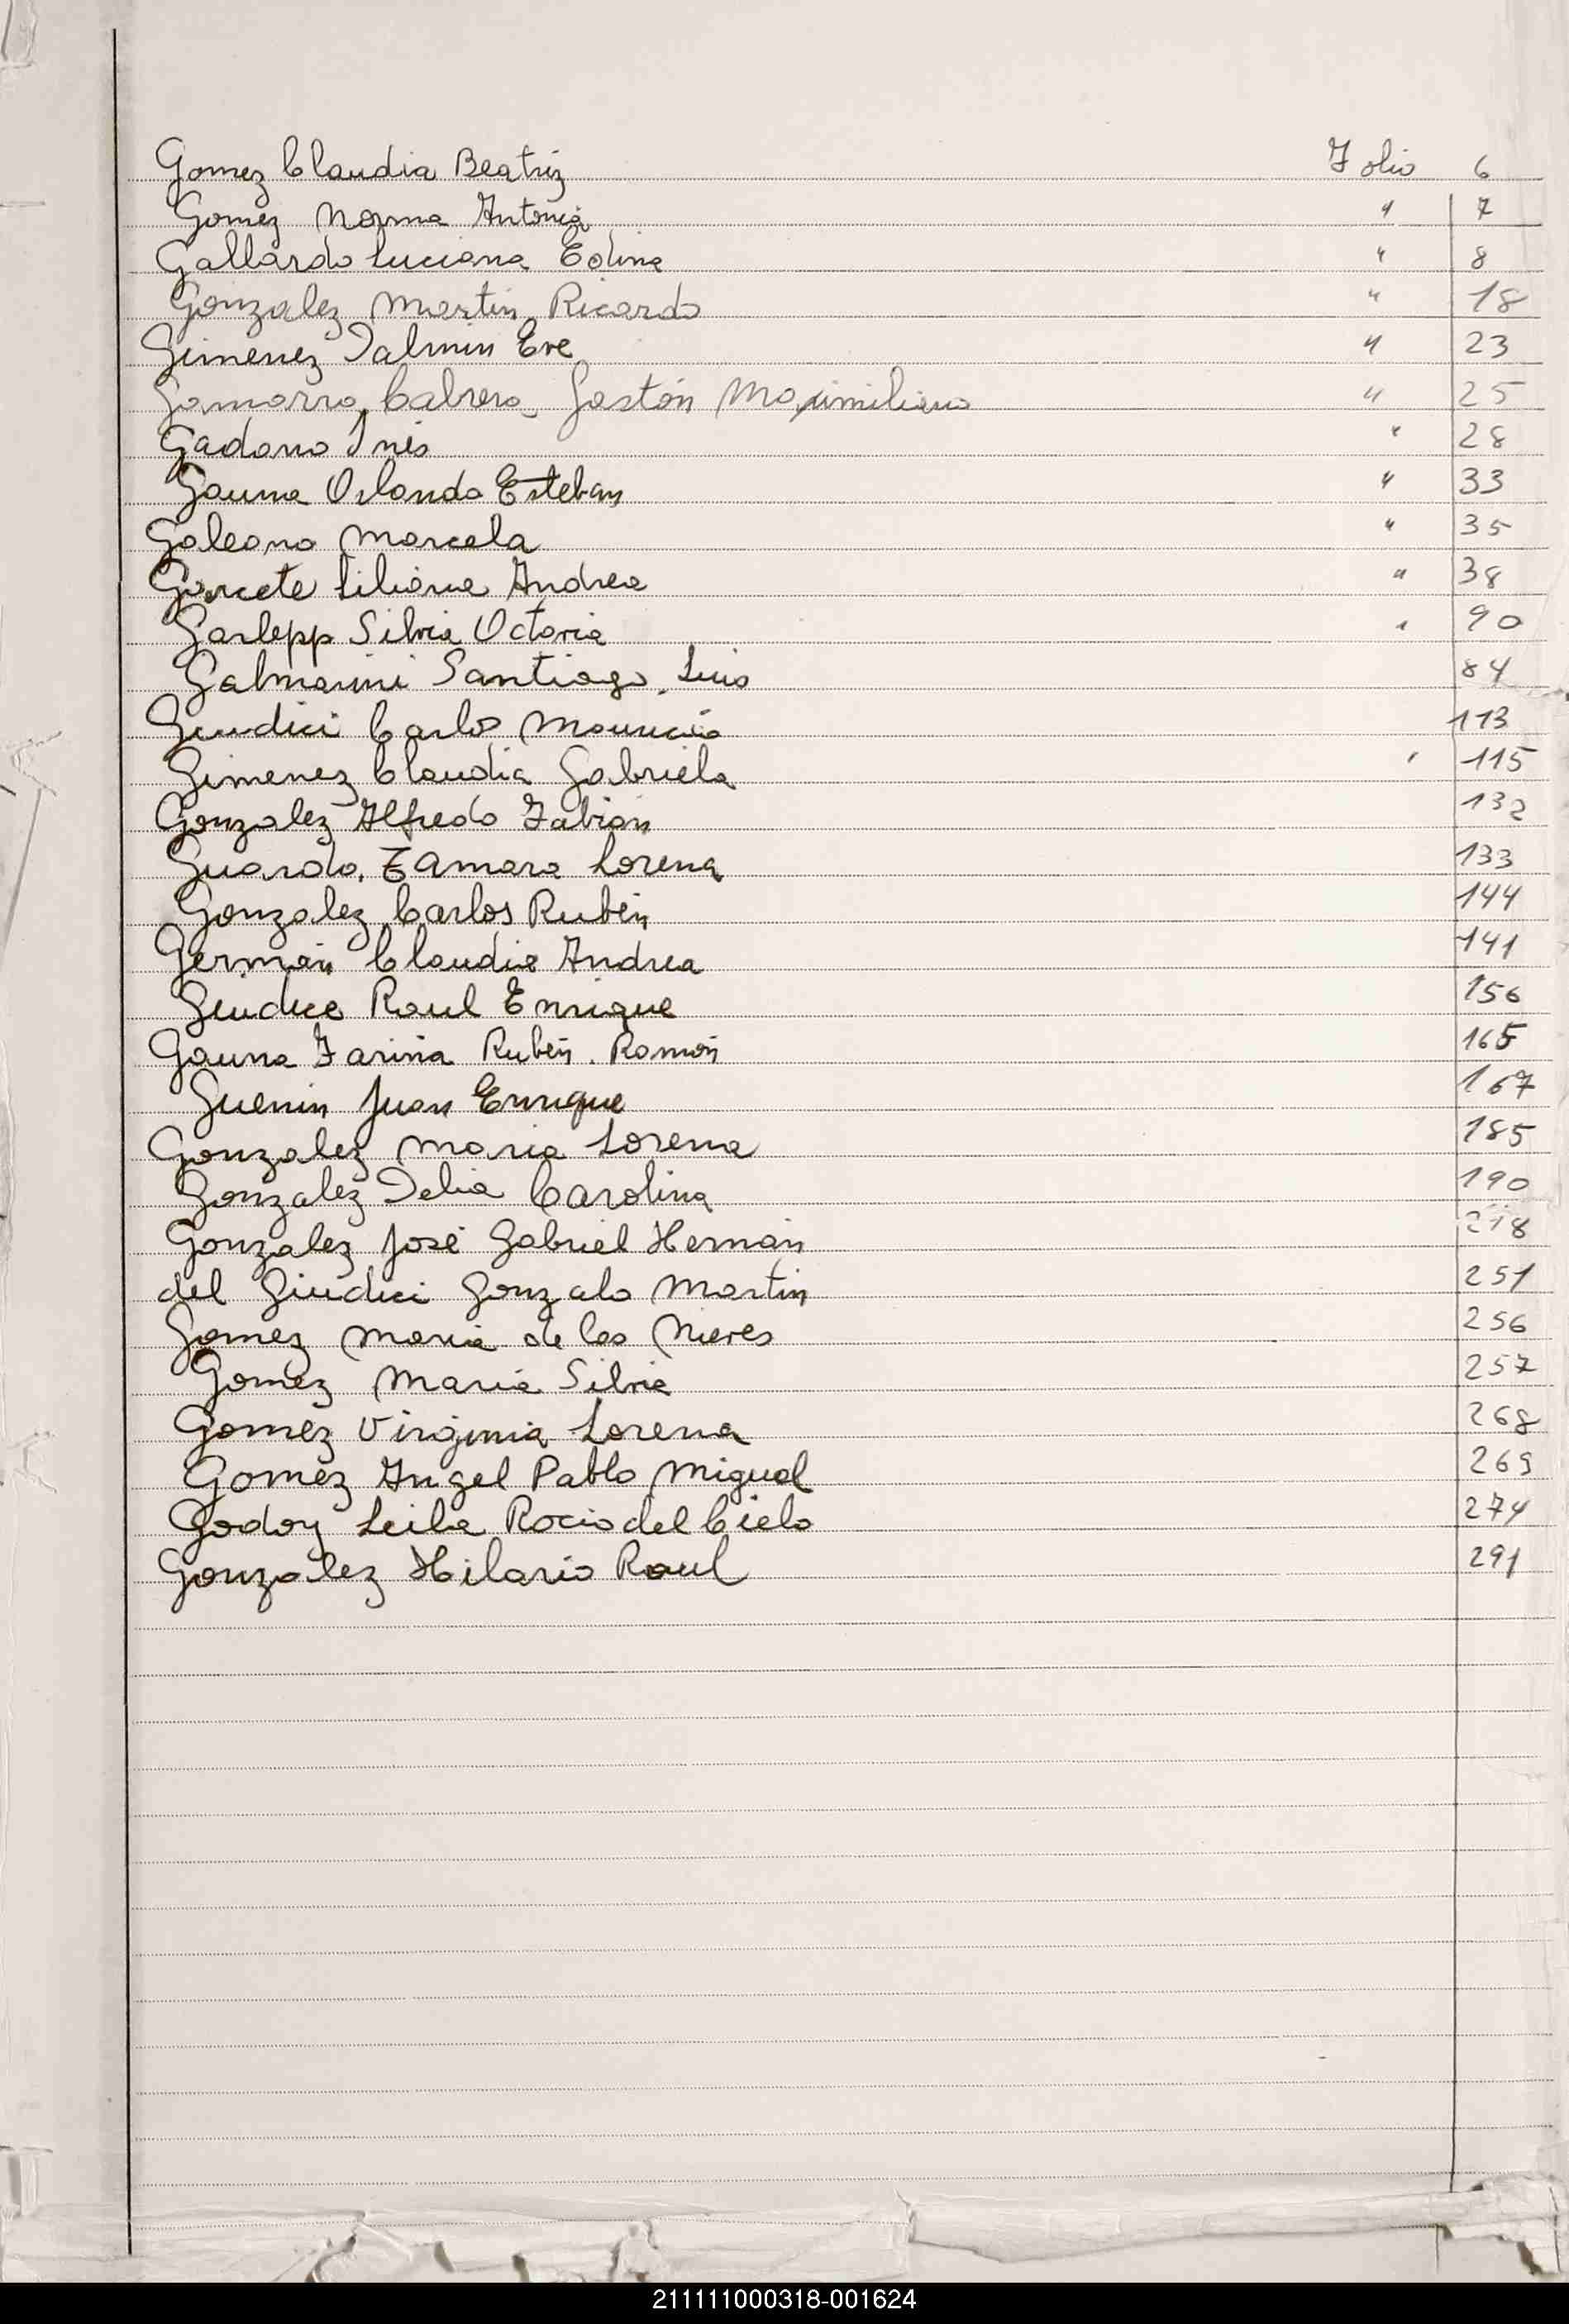 Gomez Claudia Beatriz Folio 6
Gomez Norma Antonia " 7
Gallardo Luciana Edina " 8
Gonzalez Martin Ricardo " 18
Gimenez Ialmin Eve " 23
Gamarra Cabrera Gastón Maximiliano " 25
Gadano Inés " 28
Gauna Orlando Esteban " 33
Galeano Marcela " 35
Garcete Liliana Andrea " 38
Garlepp Silvia Octavia " 90
Galmarini Santiago Luis 84
Giudici Carlos Mauricio 113
Gimenez Claudia Gabriela " 115
Gonzalez Alfredo Fabián 132
Guardo Tamara Lorena 133
Gonzalez Carlos Rubén 144
Germán Claudia Andrea 141
Giudice Raul Enrique 156
Gauna Fariña Rubén Ramón 165
Guenin Juan Enrique 167
Gonzalez Maria Lorena 185
Gonzalez Delia Carolina 190
Gonzalez José Gabriel Hernán 218
del Giudici Gonzalo Martin 251
Gomez Maria de las Nieves 256
Gomez Maria Silvia 257
Gomez Virginia Lorena 268
Gomez Angel Pablo Miguel 269
Godoy Leila Rocio del Cielo 274
Gonzalez Hilario Raul 291
211111000318-001624